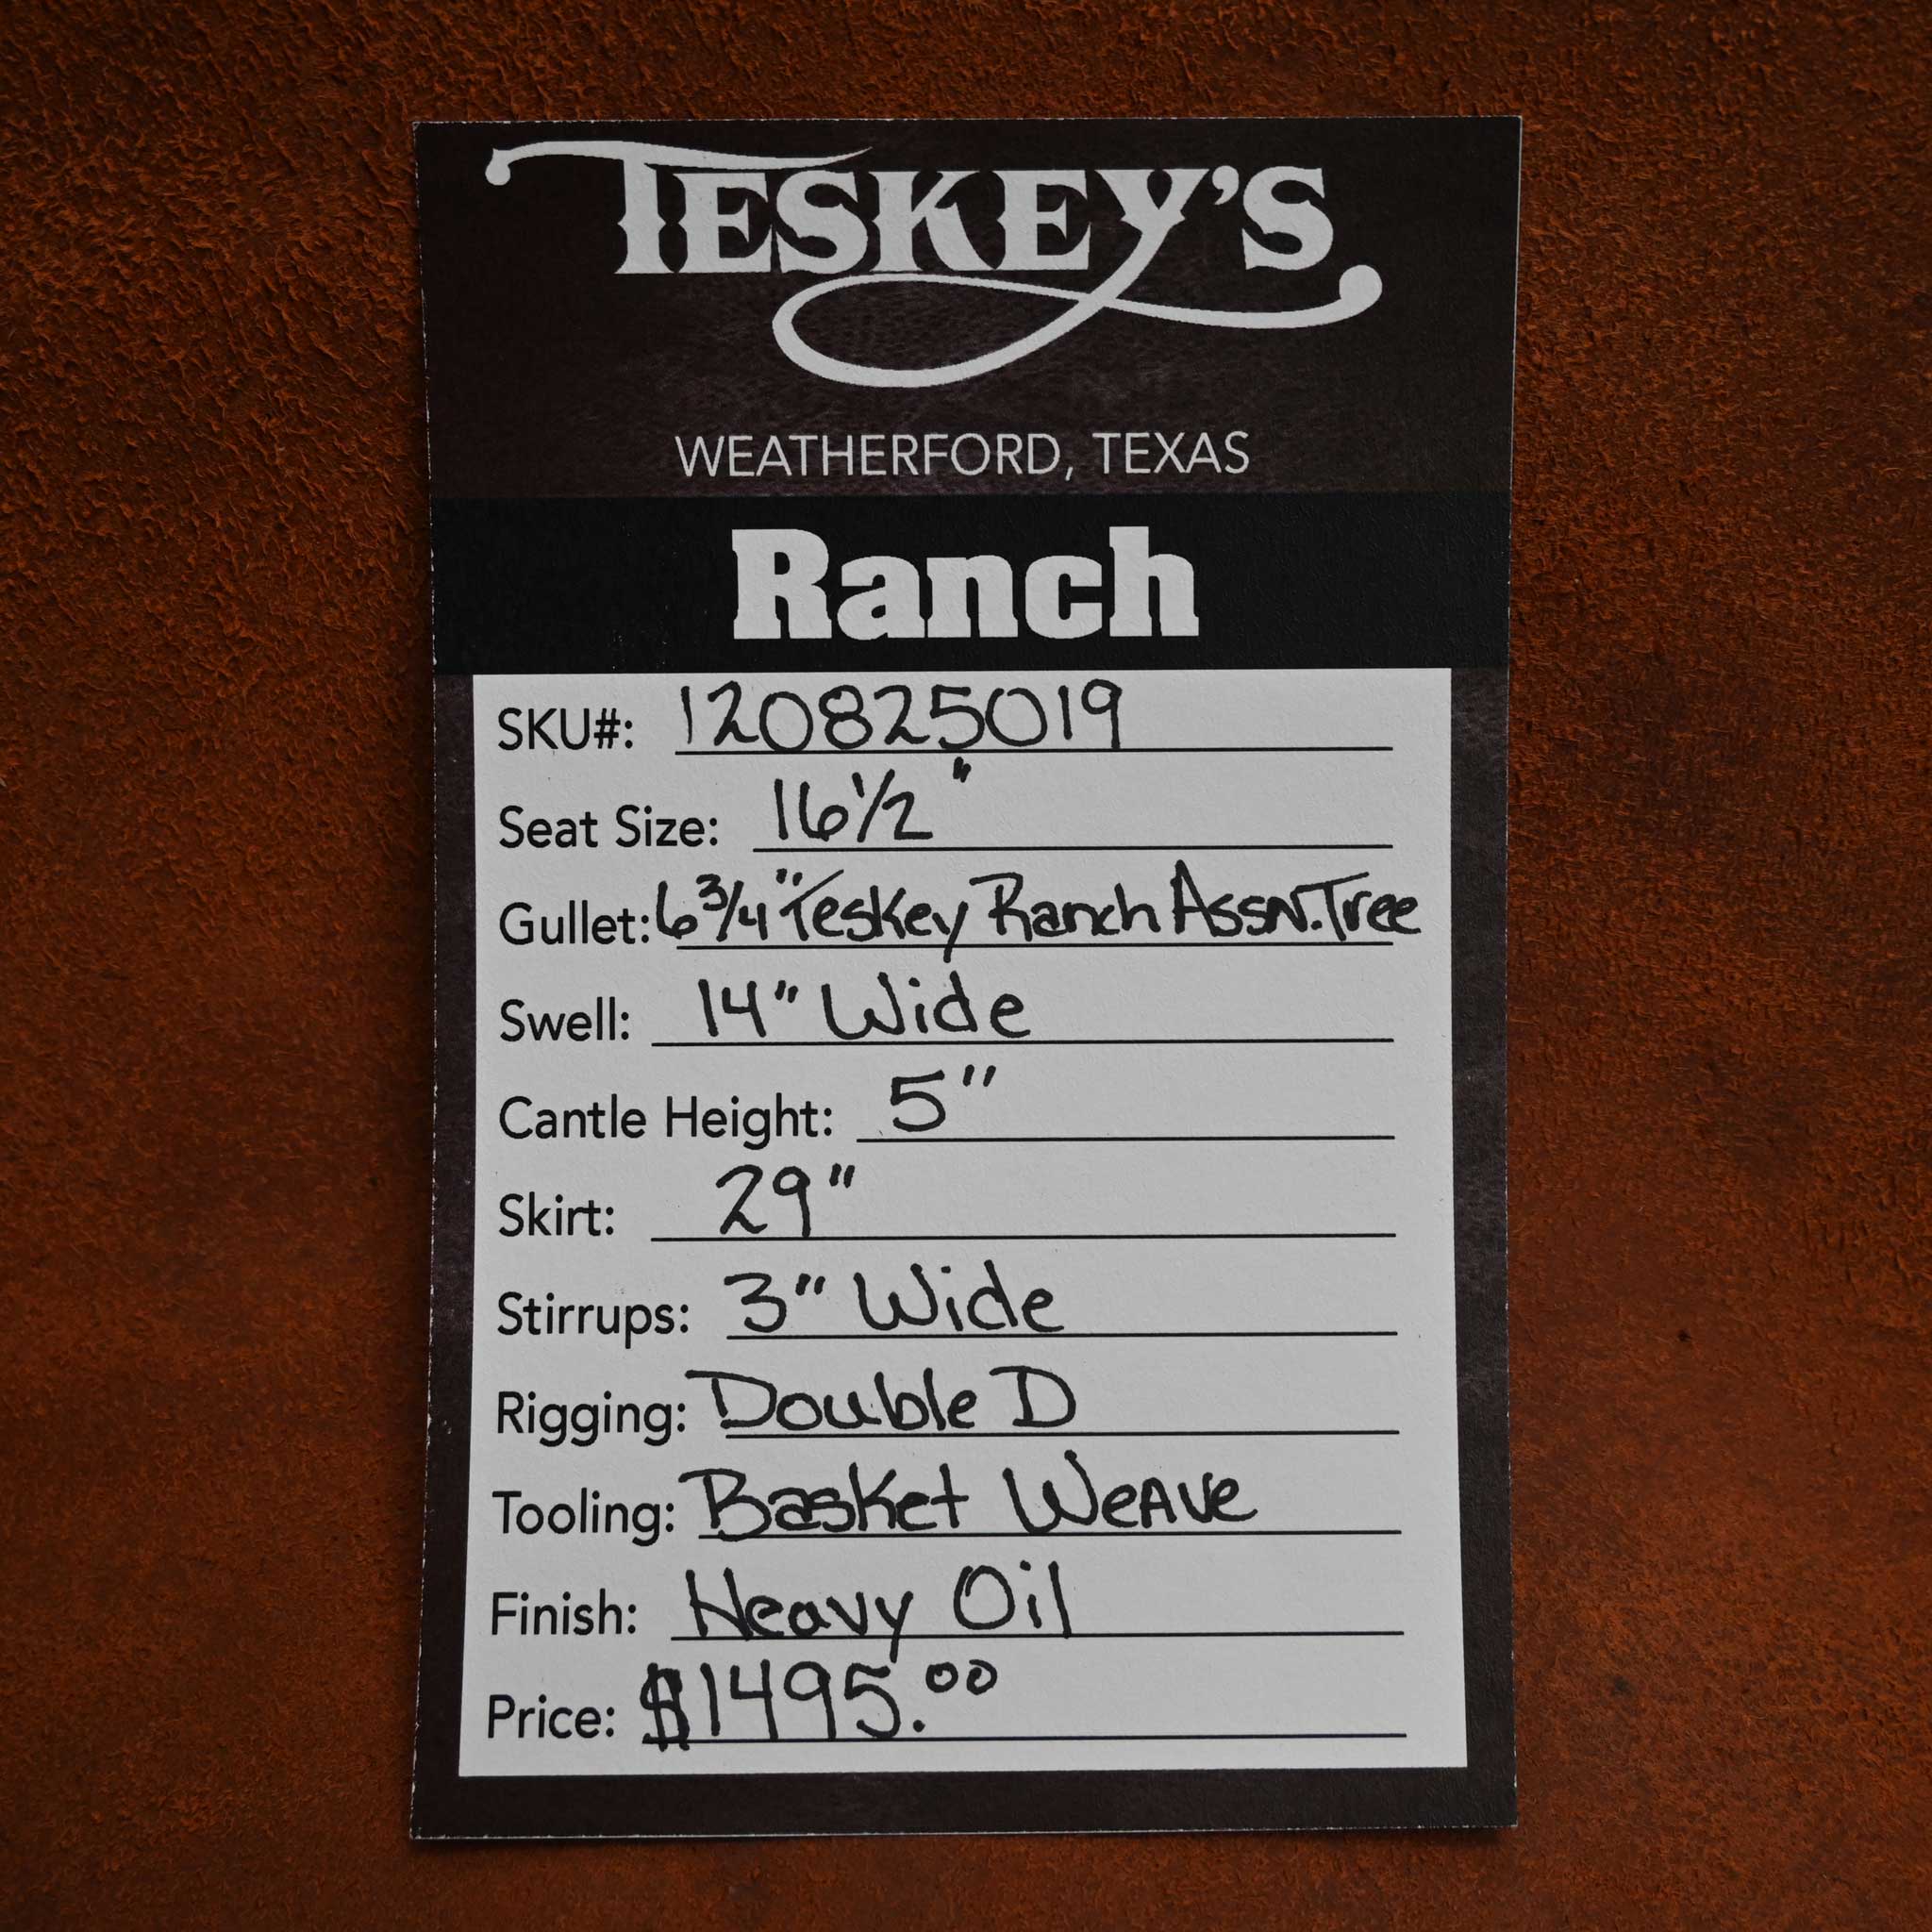 TESKEY'S
WEATHERFORD, TEXAS
Ranch
SKU#: 120825019
Seat Size: 16 1/2"
Gullet: 6 3/4" Teskey Ranch Assn. Tree
Swell: 14" Wide
Cantle Height: 5"
Skirt: 29"
Stirrups: 3" Wide
Rigging: Double D
Tooling: Basket Weave
Finish: Heavy Oil
Price: $1495.00